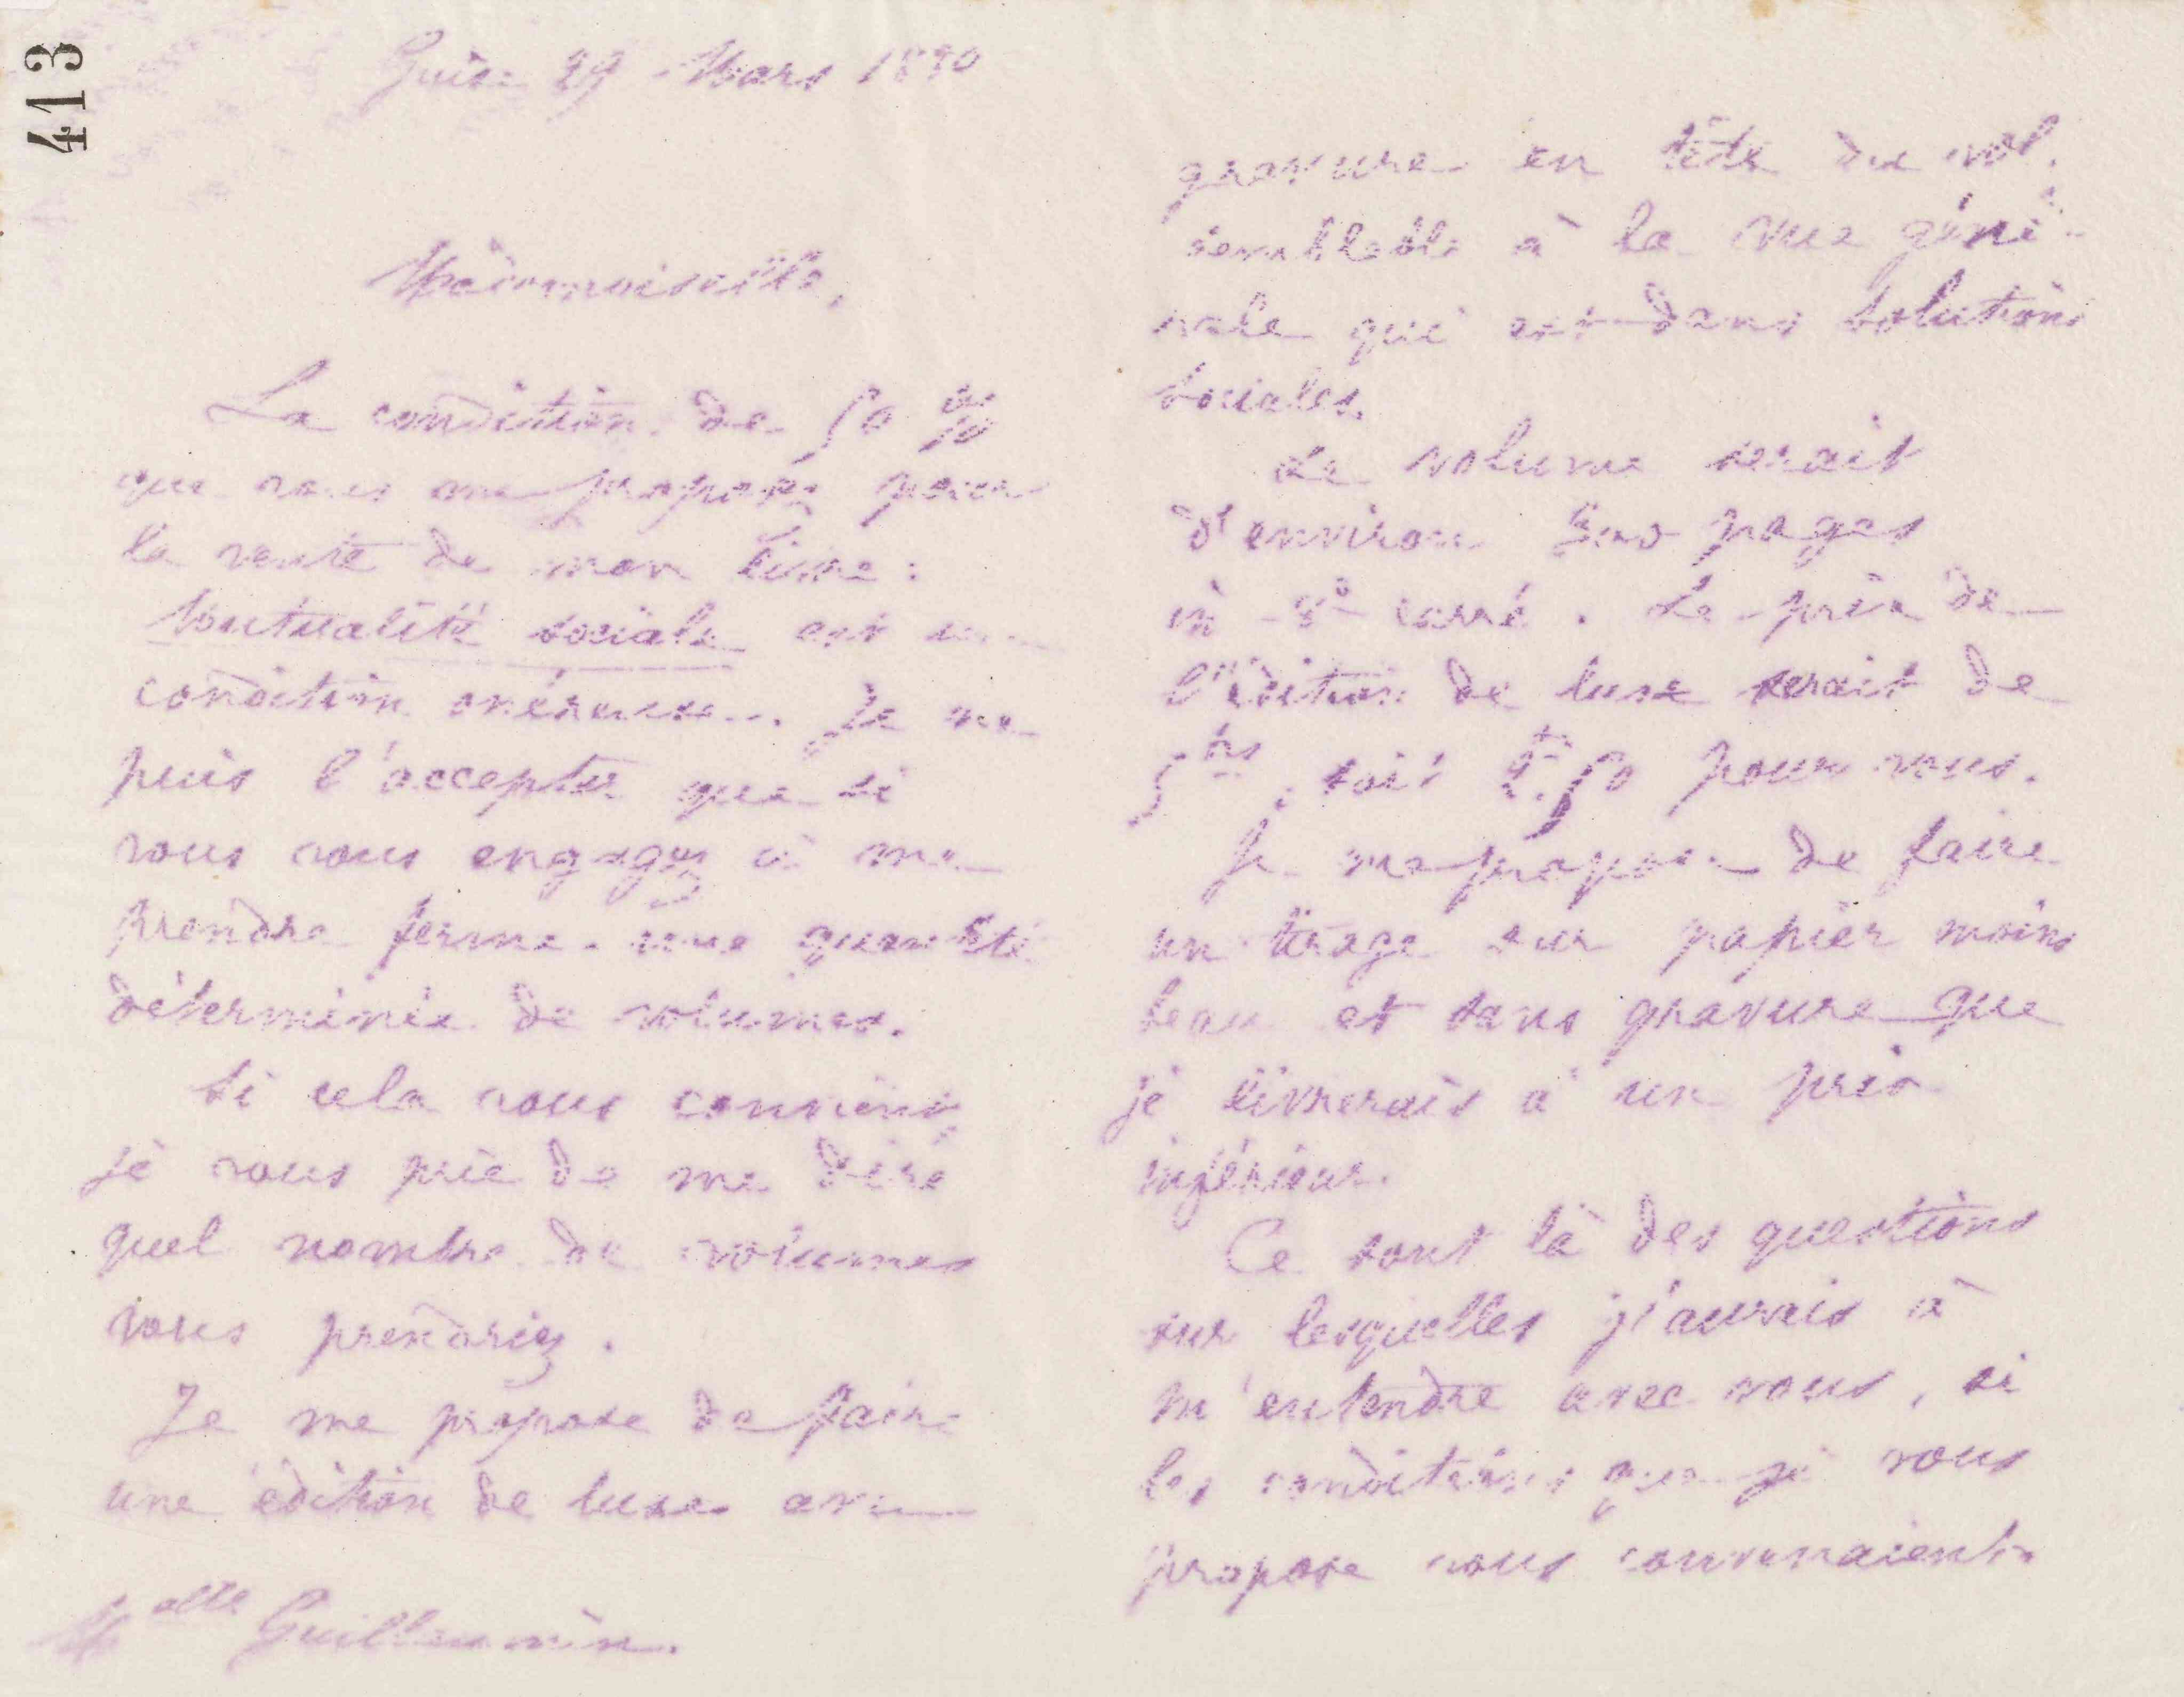 413
Guise 29 Mars 1880
Mademoiselle,
La condition de 50 %
que vous me proposez pour
la vente de mon livre :
Mutualité sociale est une
condition onéreuse. Je ne
puis l'accepter que si
vous vous engagez à me
prendre ferme une quantité
déterminée de volumes.
Si cela vous convient
je vous prie de me dire
quel nombre de volumes
vous prendriez.
Je me propose de faire
une édition de luxe avec
Melle Guillaumin.
gravure en tête du vol.
semblable à la vue géné-
rale qui est dans Solutions
Sociales.
Le volume serait
d'environ pages
in-8º carré. Le prix de
l'édition de luxe serait de
5 frs, soit 2f.50 pour vous.
Je me propose de faire
un tirage sur papier moins
beau et sans gravure que
je livrerais à un prix
inférieur.
Ce sont là des questions
sur lesquelles j'aurais à
m'entendre avec vous, si
les conditions que je vous
propose vous convenaient.